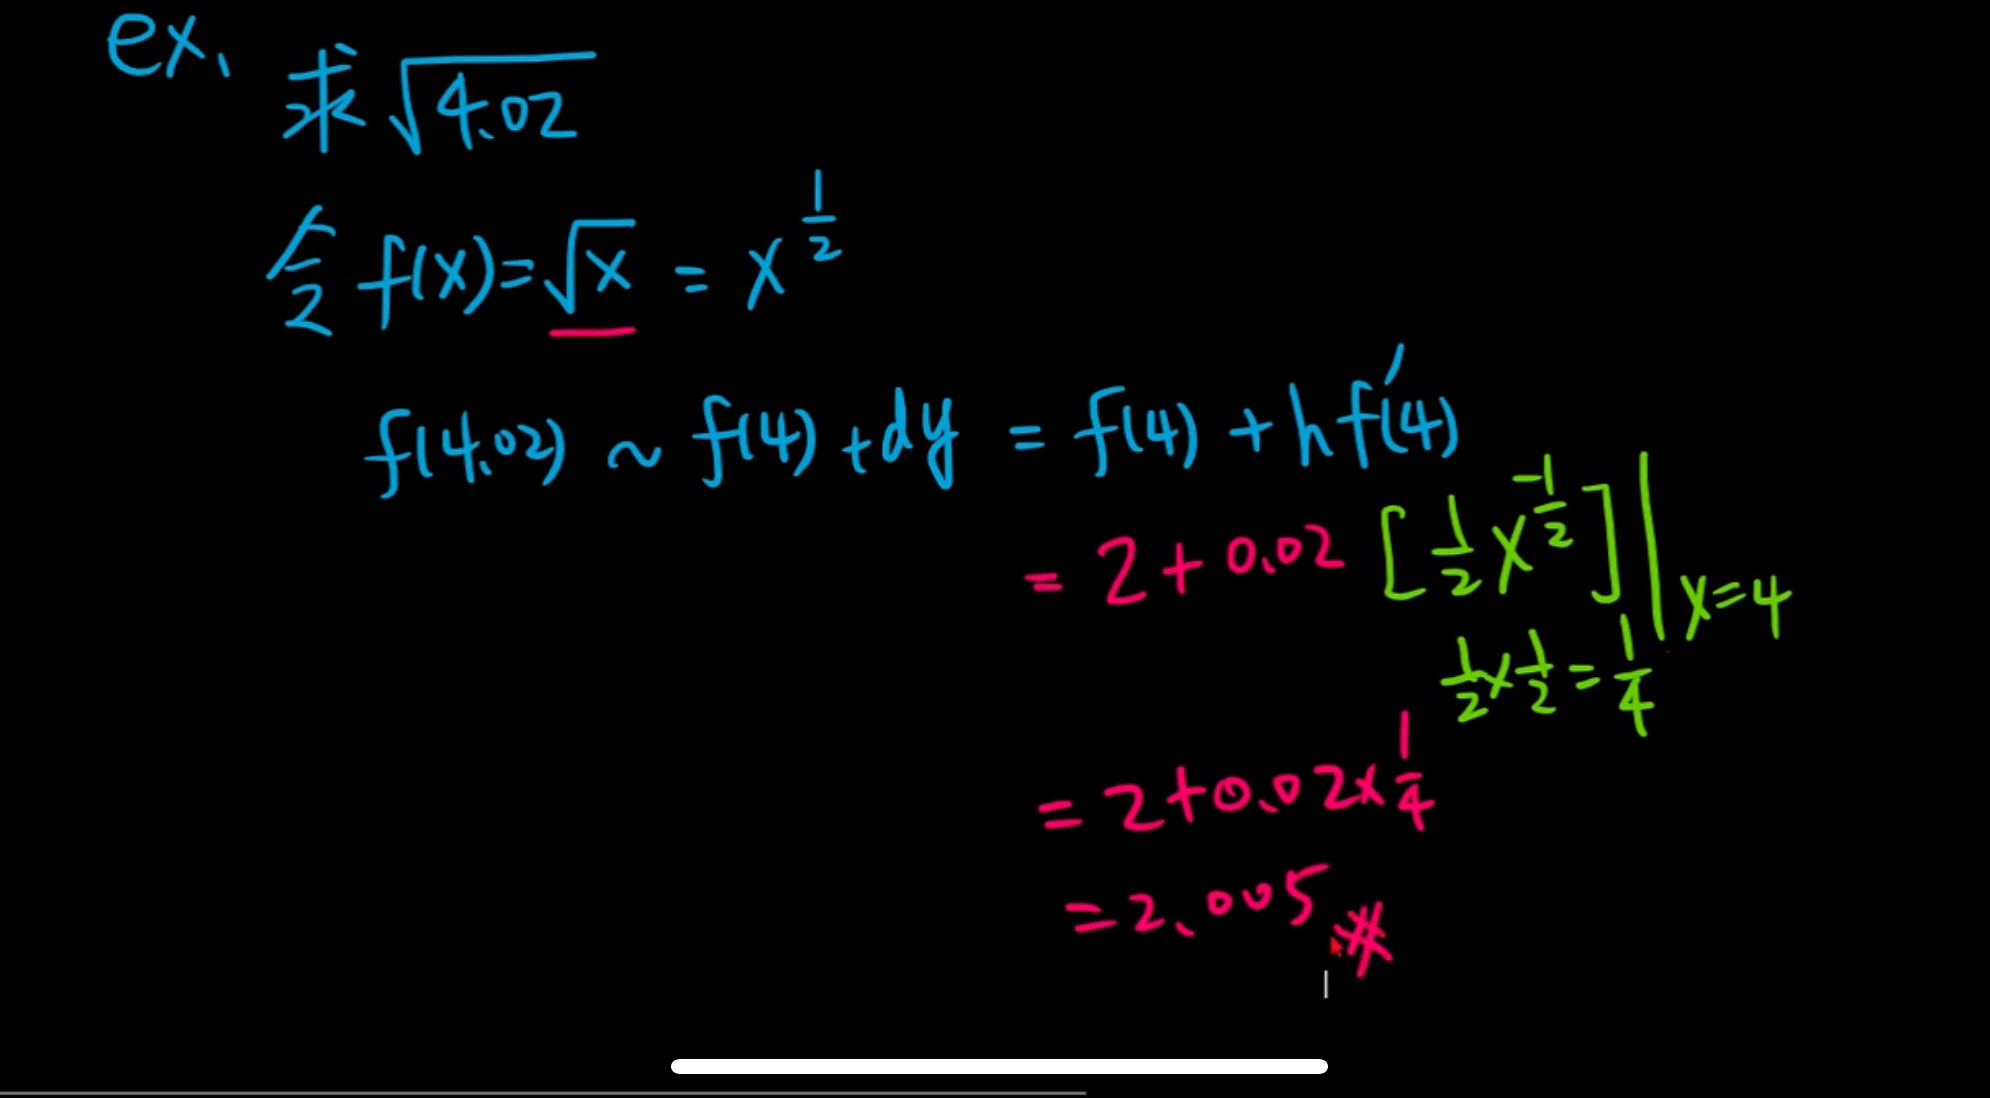 ex. 求 √4.02
令 f(x) = √x = x^(1/2)
f(4.02) ~ f(4) + dy = f(4) + h f'(4)
= 2 + 0.02 [1/2 x^(-1/2)] | x=4
1/2 × 1/2 = 1/4
= 2 + 0.02 × 1/4
= 2.005 #